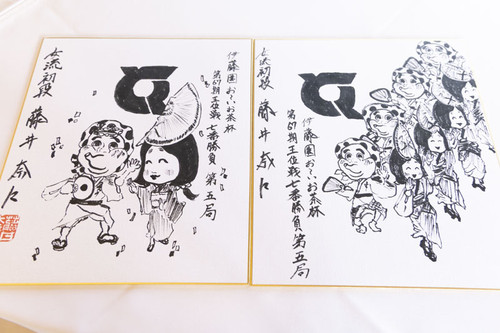 伊藤園お〜いお茶杯
第64期王位戦七番勝負 第五局
女流初段 藤井奈々
女流初段 藤井奈々
伊藤園お〜いお茶杯
第64期王位戦七番勝負第五局